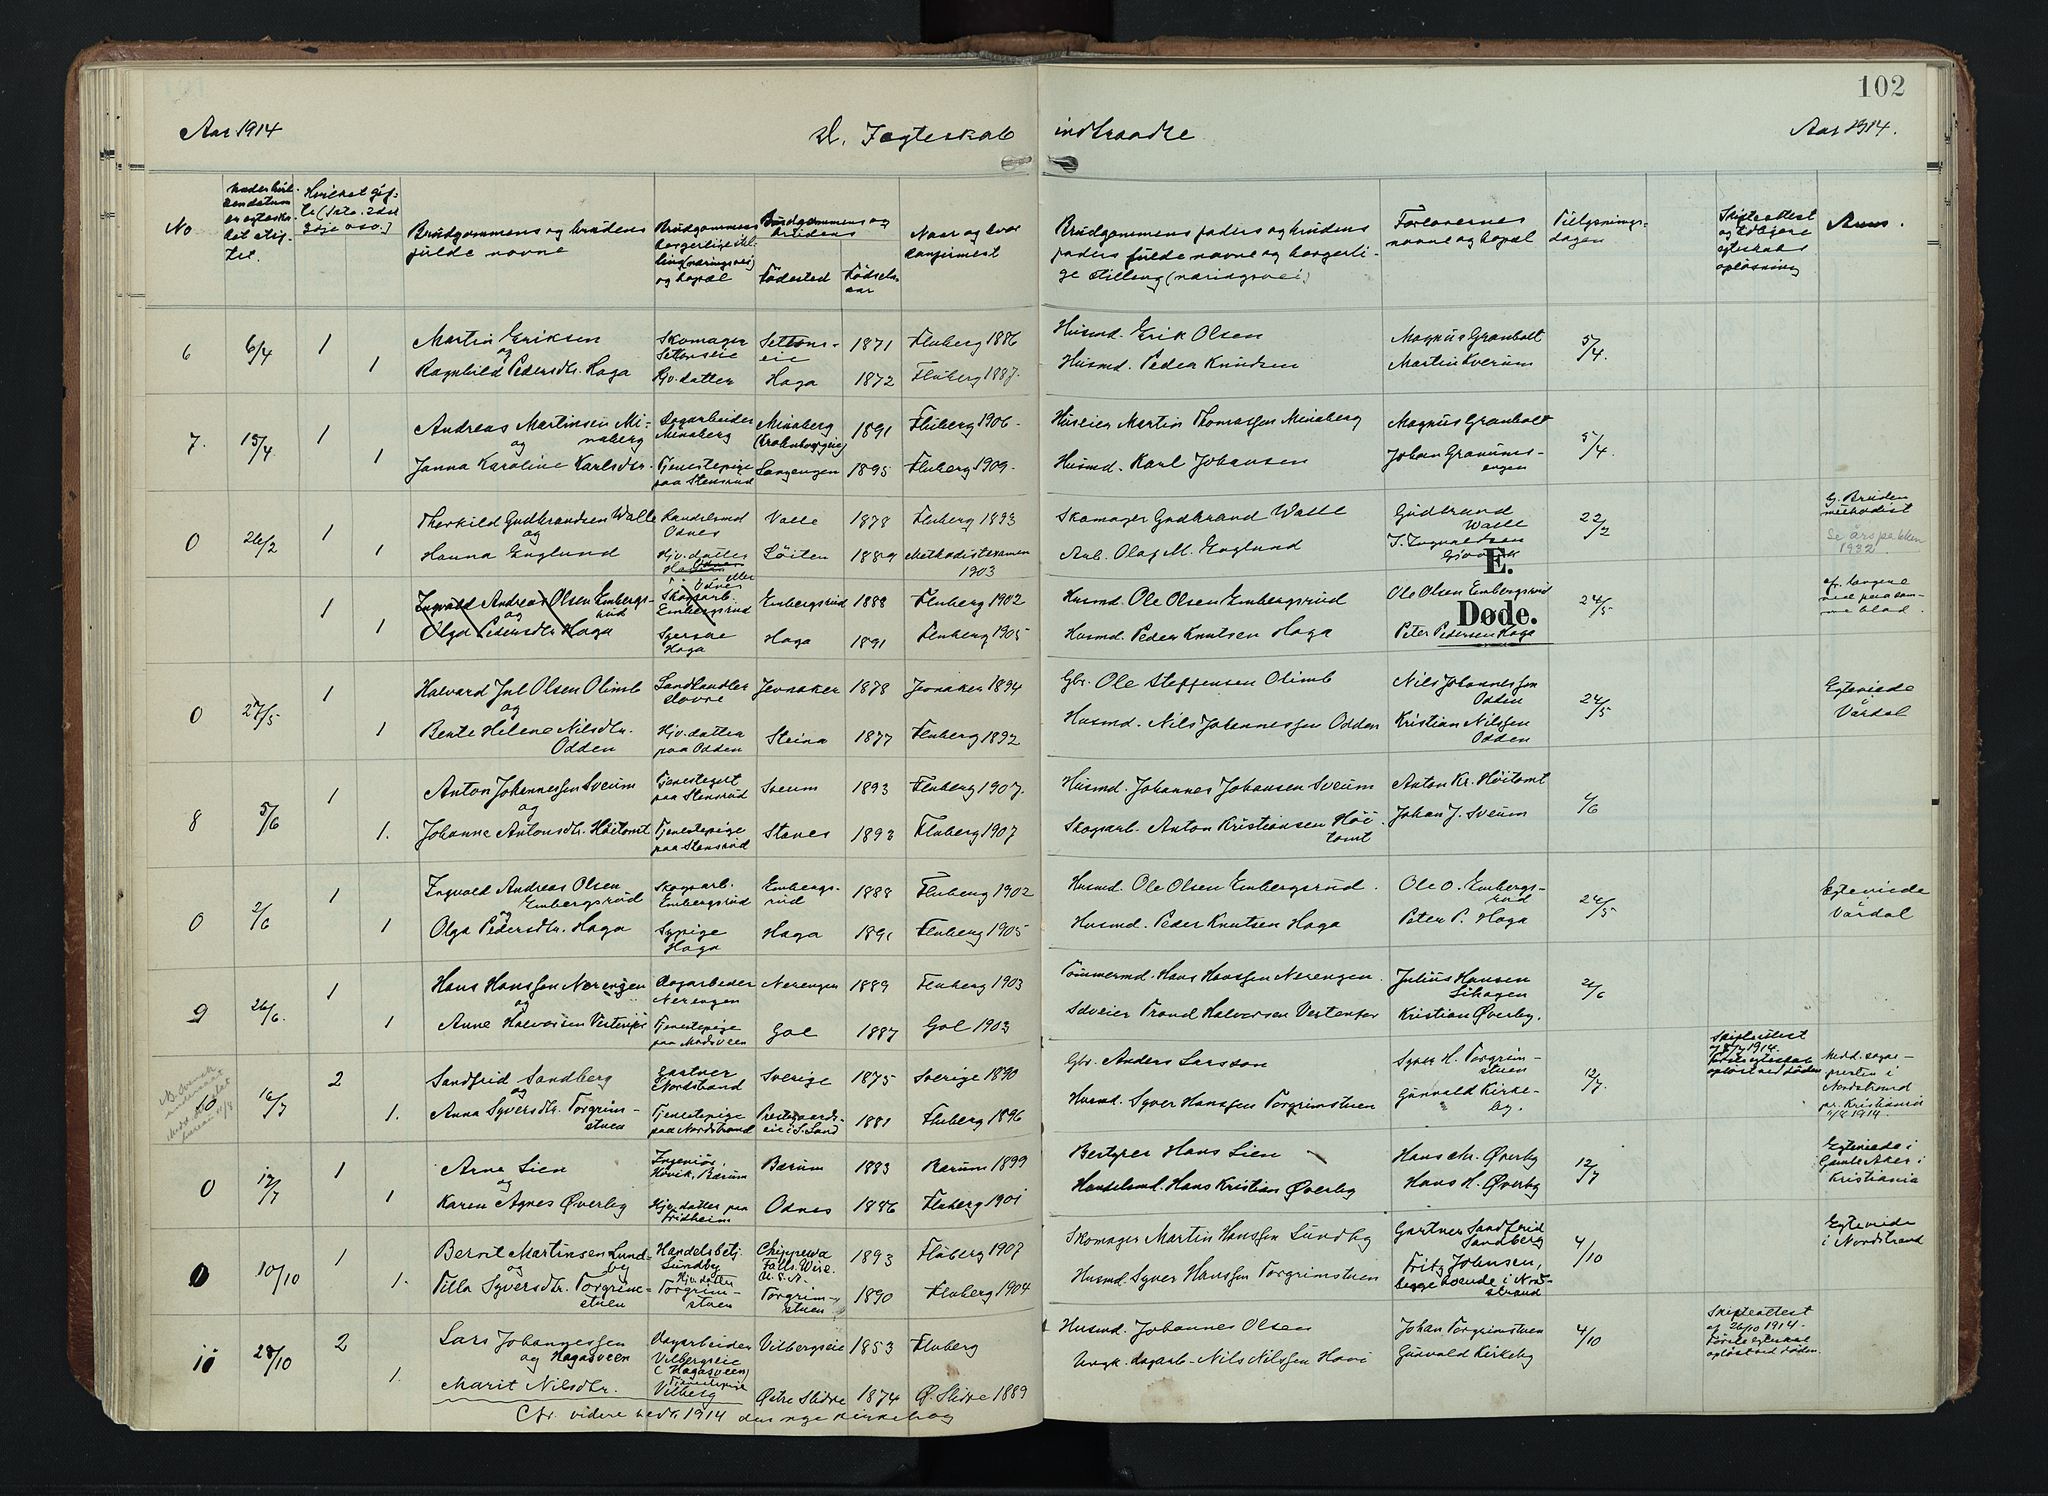 102
Aar 1914
D. I egteskab
indtraadte
Aar 1914.
No
Hvilket gif-
Brudgommens og brudens
fulde navne
Brudgommens
og bopæl
Brudgommens og
Fødested
Fødsels-
aar
Naar og hvor
konfirmert
Brudgommens faders og brudens
faders fulde navne og borgerli-
ge stilling (næringsvei)
Forlovernes
navne og bopæl
Tillysnings-
dagen
Skifteattest
og tidligere
egteskabs
opløsning
Anm.
6 6/4 1 Martin Eriksen Skomager 1871 Fluberg 1886 Husmd. Erik Olsen Magnus Granbolt 5/4.
og
1 Ragnhild Pedersdtr. Haga Hjv. datter Haga 1872 Fluberg 1887. Husmd. Peder Knudsen Martin Kverum
7. 15/4 1 Andreas Martinsen Mi- Dagarbeider Minaberg 1891 Fluberg 1906. Huseier Martin Thomassen Minaberg Magnus Granbolt 5/4.
og naberg Minaberg
1 Janna Karoline Karlsdtr. Tjenestepige Langengen 1895 Fluberg 1909. Husmd. Karl Johansen Johan Granums-
paa Stensrud engen
0 26/2 1 Therkild Gudbrandsen Walle Handelsmd Valle 1878 Fluberg 1893 Skomager Gudbrand Walle Gudbrand Walle 22/2 Bruden methodist
og Odnes
1 Hanna Englund Hjv. datter Løiten 1889 Methodistexamen 1903 Arb. Olaf M. Englund
Se årspakken 1932
E.
Døde.
1 Ingvald Andreas Olsen Embergs- Skogarb. Embergsrud 1888 Fluberg 1902 Husmd. Ole Olsen Embergsrud Ole Olsen Embergsrud 24/5
og rud Embergsrud
1 Olga Pedersdtr. Haga Haga Haga 1891 Fluberg 1905 Husmd. Peder Knutsen Haga Peter Pedersen Haga
0 27/5 1 Halvard Jul Olsen Olimb Landhandler Jevnaker 1878 Jevnaker 1894 Gbr. Ole Steffensen Olimb Nils Johannessen Odden 24/5 Egteviede Vardal
og
1 Berte Helene Nilsdtr. Odden Hjv. datter paa Odden Steina 1877 Fluberg 1892 Husmd. Nils Johannessen Odden Kristian Nilssen Odden
8 5/6 1 Anton Johannessen Sveum Tjenestegut paa Stensrud Sveum 1893 Fluberg 1907. Husmd. Johannes Johansen Sveum Anton Kr. Høitomt
og
1. Johanne Antonsdtr. Høitomt Tjenestepige paa Stensrud 1893 Fluberg 1907 Skogarb. Anton Kristiansen Høi- tomt Johan J. Sveum
0 2/6 1 Ingvald Andreas Olsen Embergsrud Skogarb. Embergsrud Embergs- rud 1888 Fluberg 1902 Husmd. Ole Olsen Embergsrud. Ole O. Embergs- rud 24/5 Egteviede Vardal
og
1 Olga Pedersdtr. Haga Sypige Haga Haga 1891 Fluberg 1905 Husmd. Peder Knutsen Haga Peter P. Haga
9 26/6. 1 Hans Hanssen Nerengen Dagarbeder Nerengen Nerengen 1889 Fluberg 1903 Tømmermd. Hans Hanssen Nerengen. Julius Hansen
og
1 Anne Halvorsen Tjenestepige paa Gol 1887 Gol 1903 Selveier Trond Halvorsen Kristian Øverby.
10 16/7 2 Sandfrid Sandberg Gartner Nordstrand Sverige 1875 Sverige 1890 Gbr. Anders Larsson Syver H. Torgrim- stuen 12/7. Skifteattest af 1914. Første egteskab opløst ved døden
og
1. Anna Syversdtr. Torgrim- stuen Tjenestepige paa Nordstrand Prestegaards- eie i S. Land 1881 Fluberg 1896 Husmd. Syver Hanssen Torgrimstuen Gunvald Kirke- by.
Nordstrand pr. Kristiania 1914.
0 17/7 1 Arne Lien Ingeniør Høvik, Bærum Bærum 1883 Bærum 1899 Bestyrer Hans Lien Hans Chr. Øverby 12/7 Egteviede i Gamle Aker i Kristiania
og
1 Karen Agnes Øverby Hjv. datter paa Fridheim Odnes 1886 Fluberg 1901 Handelsmd. Hans Kristian Øverby Hans H. Øverby
0 10/10 1 Bervit Martinsen Lund- by Handelsbetj. Lundby Chippewa Falls, Wisc. U.S.A. 1893 Fluberg 1907 Skomager Martin Hanssen Lundby Gartner Sandfrid Sandberg 4/10 Egteviede i Nordstrand
og
1. Tilla Syversdtr. Torgrim- stuen Hjv. datter Torgrim- stuen Torgrim- stuen 1890 Fluberg 1904 Husmd. Syver Hanssen Torgrimstuen Fritz Johnsen, begge boende i Nord- strand
11 28/10 2 Lars Johannessen Hagasveen Dagarbeider Vilbergseie (Hagasveen) Vilbergseie 1853 Fluberg Husmd. Johannes Olsen Johan Torgrimstuen 4/10 Skifteattest af 26/10 1914. Første egteskab opløst ved døden.
og
1. Marit Nilsdtr. Tjenestepige Vilberg Østre Slidre 1874 Ø. Slidre 1889 Ungk. dagarb. Nils Nilssen Hovi Gunvald Kirkeby
Cfr. videre 1914 den nye kirkebog